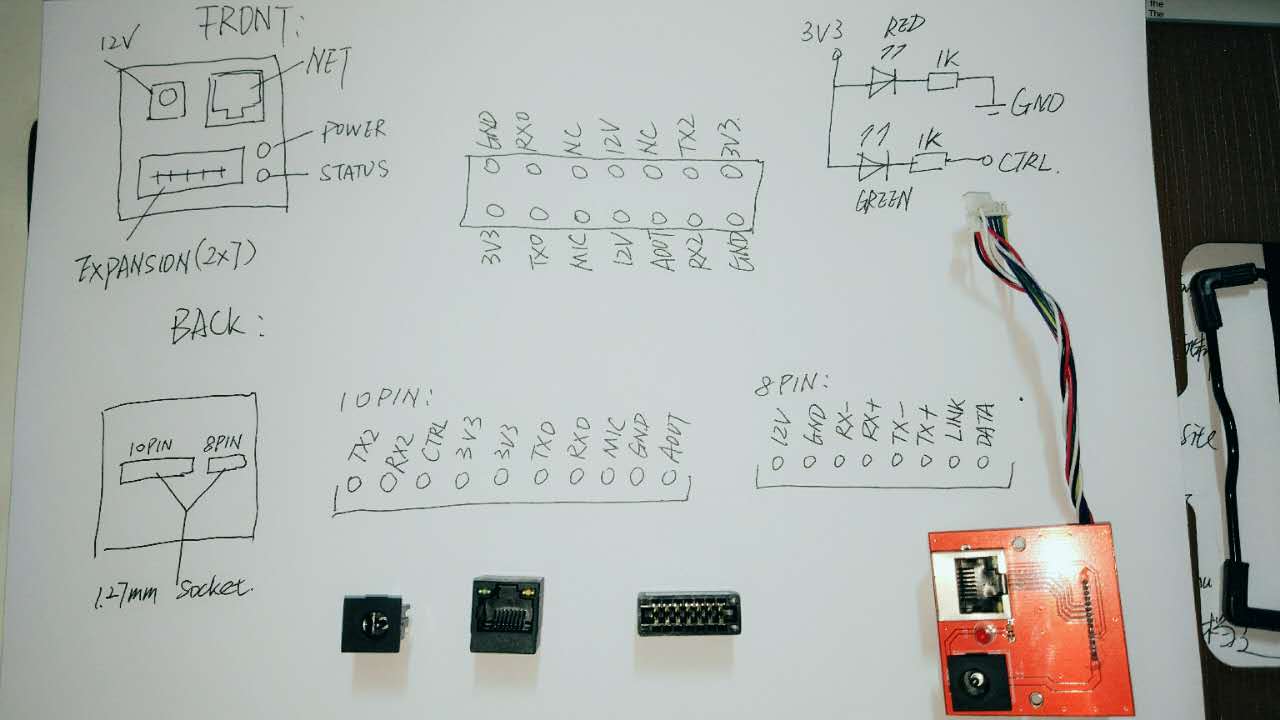 FRONT:
12V
NET
POWER
STATUS
EXPANSION(2x7)
GND RX0 NC 12V NC TX2 3V3.
3V3 TX0 MIC 12V AOUT RX2 GND
3V3 RED 1K
GND
1K
CTRL.
GREEN
BACK:
10PIN 8PIN
1.27mm Socket.
10PIN:
TX2 RX2 CTRL 3V3 3V3 TX0 RX0 MIC GND AOUT
8PIN:
12V GND RX- RX+ TX- TX+ LINK DATA
the
The
site